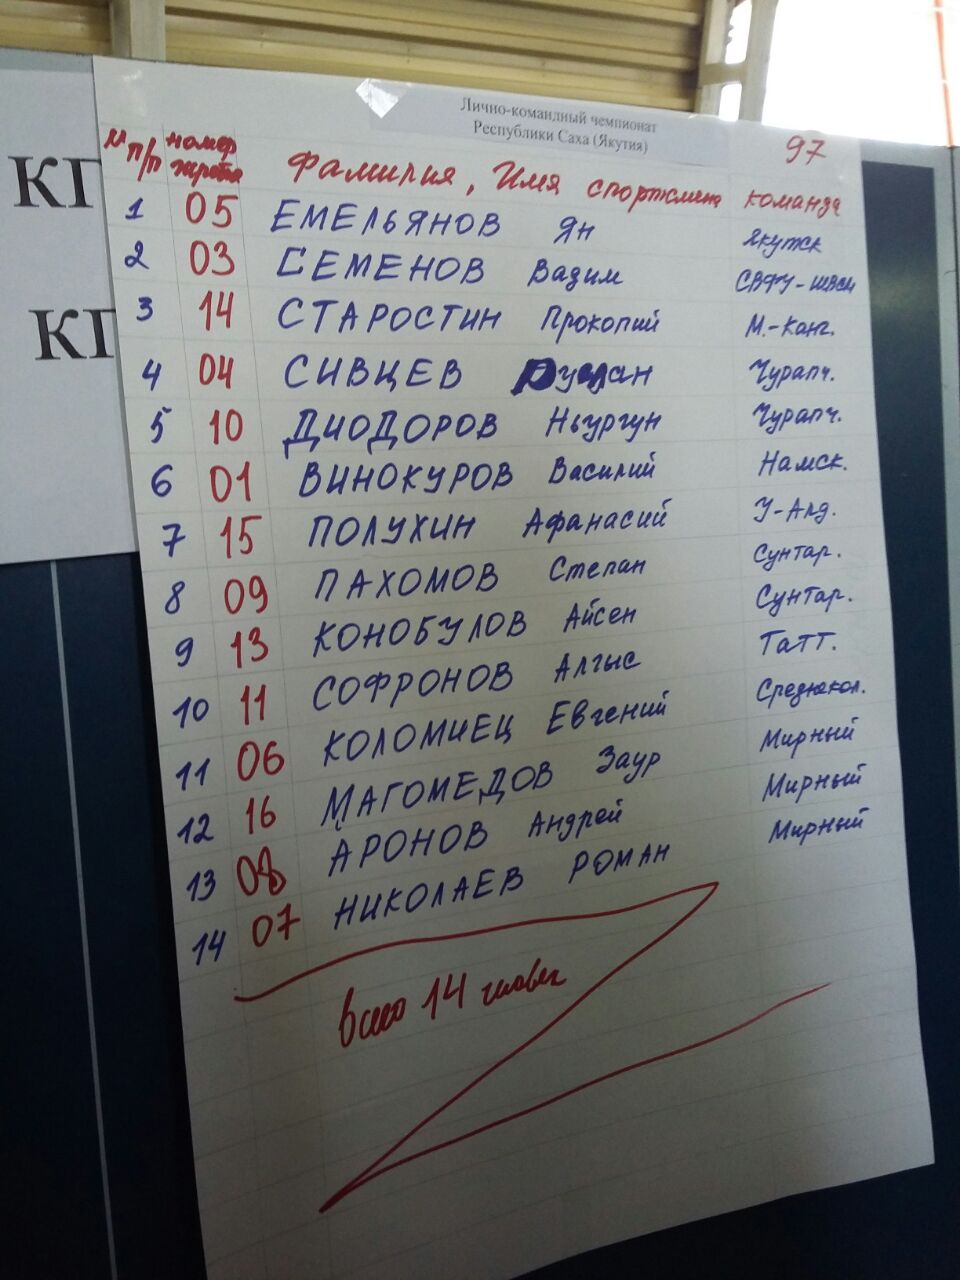 Лично-командный чемпионат
Республики Саха (Якутия)
97
№ п/п номер жребия Фамилия, Имя спортсмена команда
1 05 ЕМЕЛЬЯНОВ Ян Якутск
2 03 СЕМЕНОВ Вадим СВФУ-ШВСМ
3 14 СТАРОСТИН Прокопий М.-Канг.
4 04 СИВЦЕВ Руслан Чурапч.
5 10 ДИОДОРОВ Ньургун Чурапч.
6 01 ВИНОКУРОВ Василий Намск.
7 15 ПОЛУХИН Афанасий У-Алд.
8 09 ПАХОМОВ Степан Сунтар.
9 13 КОНОБУЛОВ Айсен Сунтар.
10 11 СОФРОНОВ Алгыс Татт.
11 06 КОЛОМИЕЦ Евгений Среднекол.
12 16 МАГОМЕДОВ Заур Мирный
13 08 АРОНОВ Андрей Мирный
14 07 НИКОЛАЕВ РОМАН Мирный
всего 14 человек
КГ
КГ